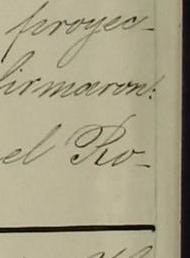 proyec-
firmaron:
el Ro-